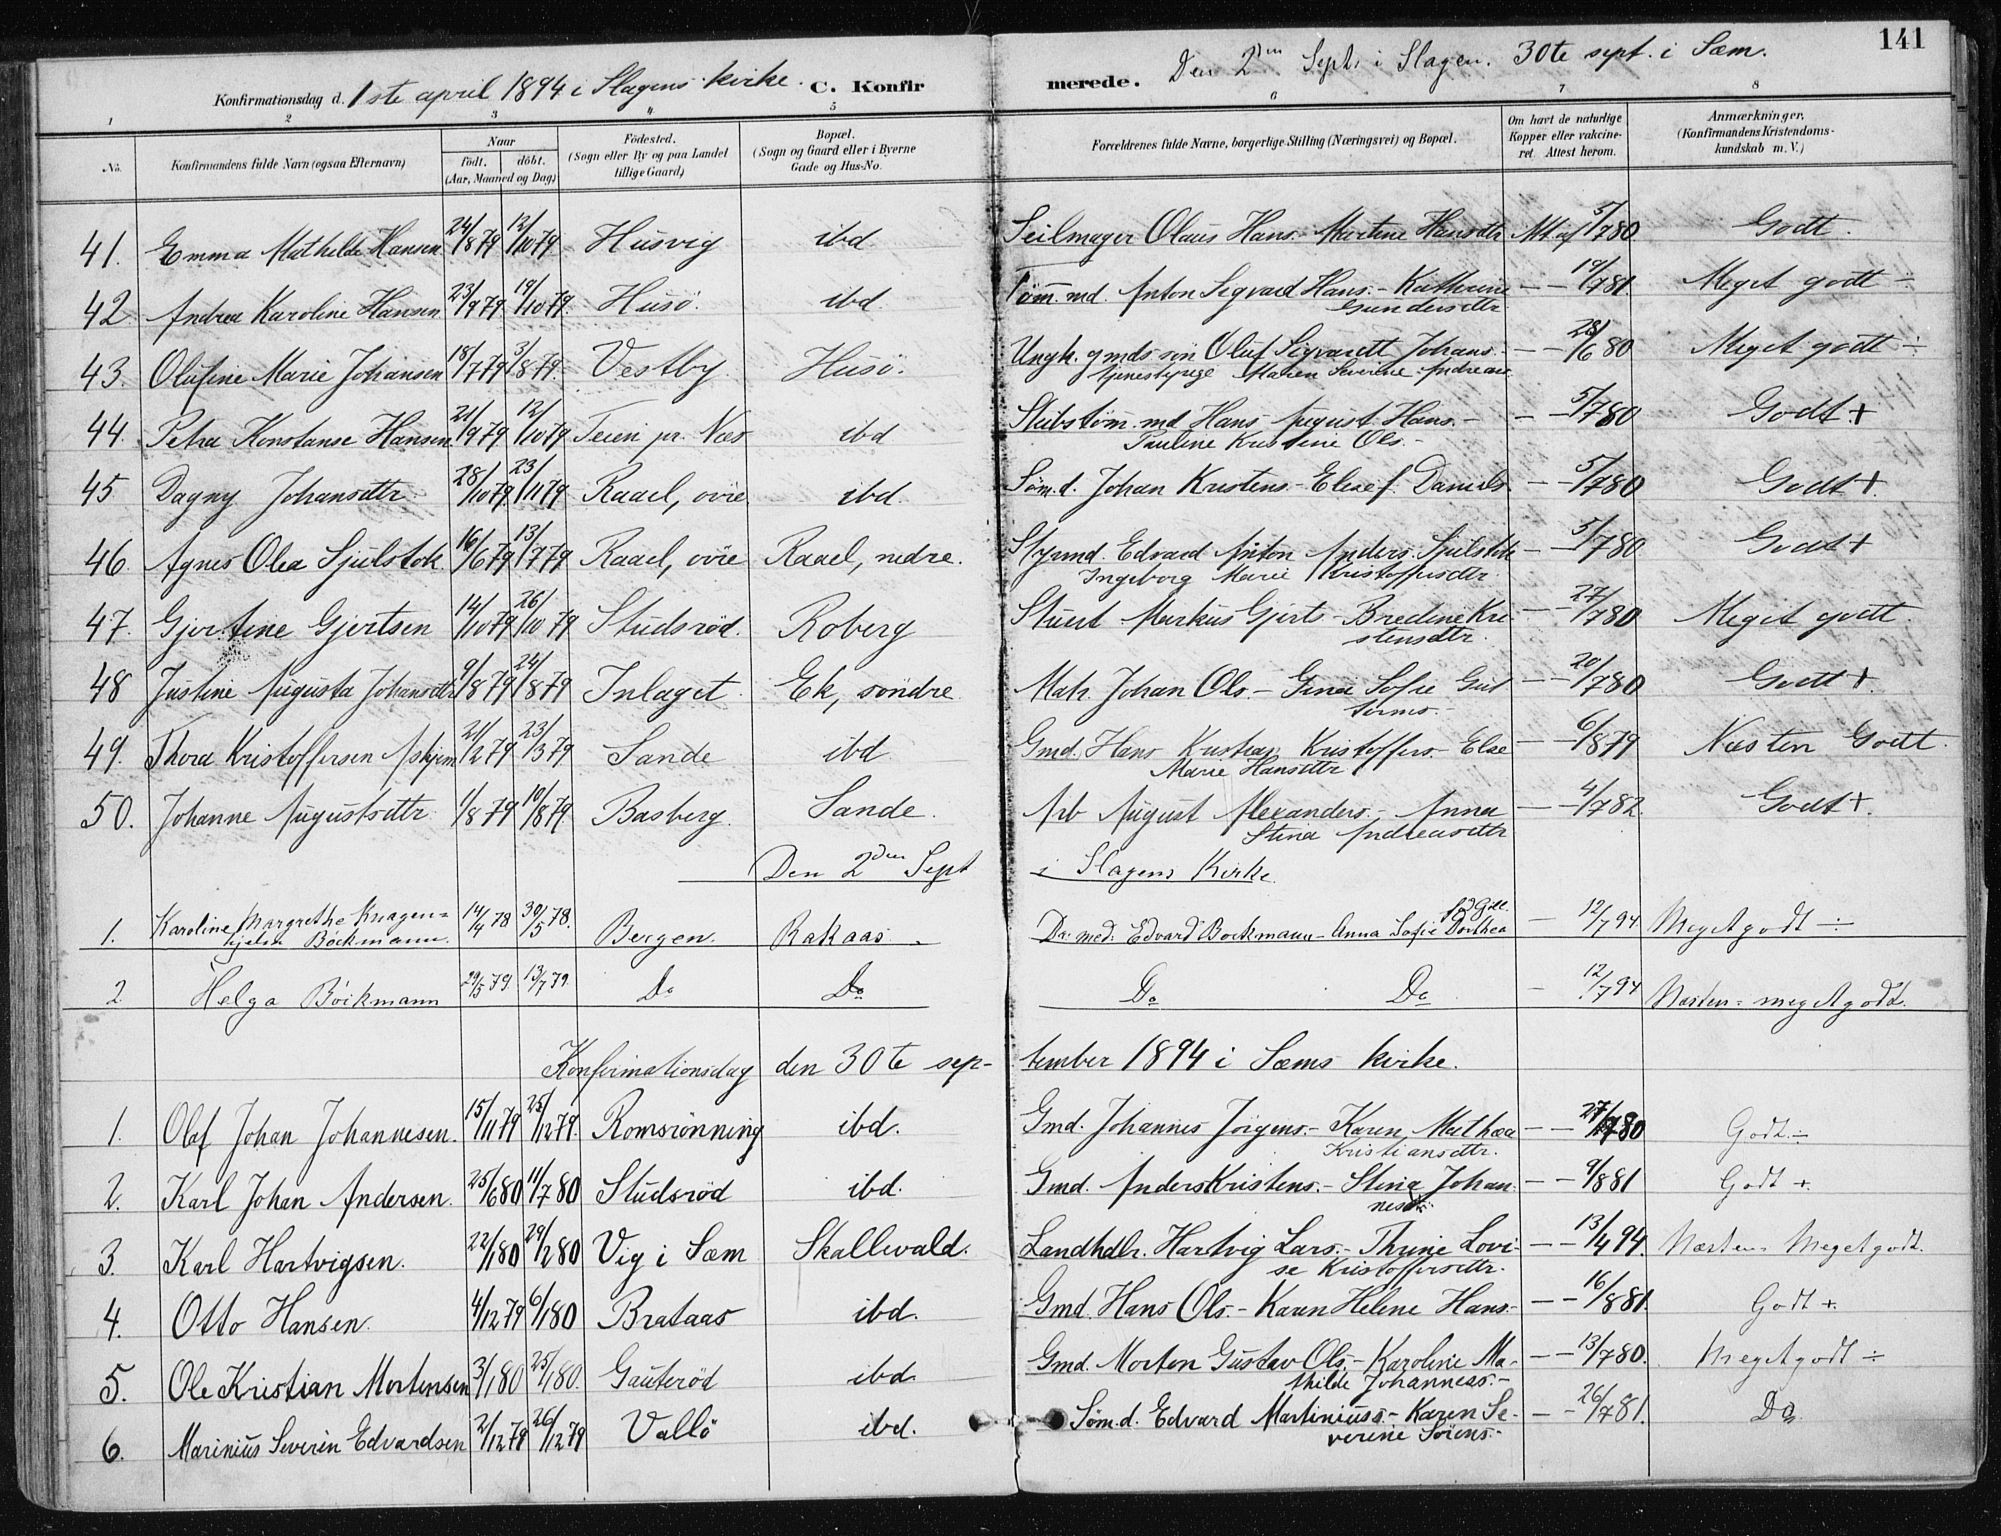 141
Konfirmationsdag d. 1ste april 1894 i Slagens kirke. C. Konfirmerede. Den 2den Sept. i Slagen. 30te sept. i Sæm.
1 2 3 4 5 6 7 8
No. Konfirmandens fulde Navn (ogsaa Efternavn) Naar født. døbt. (Aar, Maaned og Dag) Fødested. (Sogn eller By og paa Landet tillige Gaard) Bopæl. (Sogn og Gaard eller i Byerne Gade og Hus-No. Forældrenes fulde Navne, borgerlige Stilling (Næringsvei) og Bopæl. Om havt de naturlige Kopper eller vakcineret. Attest herom. Anmærkninger. (Konfirmandens Kristendomskundskab m. V.)
41. Emma Mathilde Hansen 24/8 79 12/10 79 Husvig ibd. Seilmager Olaus Hans.- Martine Hansdtr 5/7 80 Godt.
42. Andrea Karoline Hansen 23/9 79. 19/10 79. Husö. ibd. Tøm.md. Anton Segvard Hans.- Kathrine - - 19/7 81. Meget godt ÷
Gundersdtr
43. Olufine Marie Johansen 18/7 79 3/8 79. Vestby Husö. Ungk. gmds søn Oluf Sigvardt Johans.- - - 28/6 80 Meget godt ÷
tjenestepige Maren Severine Andreas
44. Petra Konstanse Hansen 21/9 79 12/10 79 Teien pr. Næs ibd Skibstøm.md Hans August Hans.- - - 5/7 80 Godt +
Pauline Kristine Ols.-
45. Dagny Johansdtr. 28/10 79. 23/11 79 Raael, øvre ibd. Søm.d. Johan Kristens.- Elisef. Daniels - - 5/7 80 Godt +.
46. Agnes Olea Sjulstok 16/6 79 13/7 79 Raael, øvre Raael, nedre. Styrmd. Edvard Anton Anders. Sjulstok - - 5/7 80 Godt +
Ingeborg Marie Kristoffersdtr.
47. Gjertine Gjertsen 14/10 79 26/10 79 Studsrød. Roberg Stuert Markus Gjerts.- Bredine Kri- - - 27/7 80 Meget godt.
stensdtr.
48 Justine Augusta Johansdtr 9/8 79 24/8 79 Inlaget. Ek, söndre Matr. Johan Ols.- Gina Sofie Gut - - 20/7 80 Godt +.
torms.-
49. Thora Kristoffersen Askjem 21/2 79 23/3 79 Sande ibd. Gmd. Hans Kristian Kristoffers.- Else - - 6/8 79 Næsten Godt.
Marie Hansdtr
50. Johanne Augustsdtr. 1/8 79 10/8 79. Basberg. Sande. Arb August Alexanders.- Anna - - 4/7 82. Godt +.
Stina Andreasdtr
Den 2den Sept i Slagens Kirke.
1. Karoline Margrethe Knagen= 14/4 78 30/5 78. Bergen. Rakaas. Dr. med. Edvard Bøckmann - Anna Sofie Dorthea - 12/7 94. Meget godt ÷
hjelm Böckmann. fød Gill.
2 Helga Böckmann 29/5 79. 13/7 79. Do Do Do Do - 12/7 94 Næsten = meget godt.
Konfirmationsdag den 30te september 1894 i Sæms kirke.
1. Olaf Johan Johannesen. 15/11 79 25/12 79. Romsrönning ibd. Gmd. Johannes Jörgens.- Karen Mathea - - 27/7 80 Godt ÷
Kristiansdtr.
2. Karl Johan Andersen. 25/6 80 11/7 80 Studsröd ibd. Gmd. Anders Kristens.- Stina Johan - - 9/8 81 Godt +.
nesdtr.
3. Karl Hartvigsen. 22/1 80 29/2 80 Vig i Sæm Skallevald. Landhdlr. Hartvig Lars.- Thrine Lovi- - - 13/4 94. Næsten Meget godt.
se Kristoffersdtr.
4. Otto Hansen. 4/12 79 6/1 80 Brataas ibd. Gmd. Hans Ols.- Karen Helene Hans.- - - 16/8 81. Godt +.
5. Ole Kristian Mortensen 3/1 80 25/1 80. Gauteröd ibd. Gmd. Morten Gustav Ols.- Karoline Ma- - - 13/7 80. Meget godt ÷
thilde Johanneas.-
6. Marinius Severin Edvardsen 2/12 79 26/12 79 Vallö ibd. Søm.d. Edvard Martiniuss.- Karen Se- - - 26/7 81. Do
verine Sörens.-